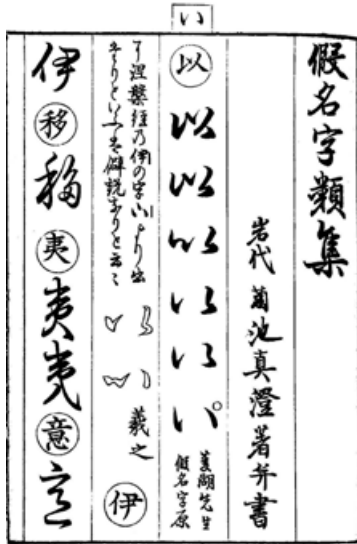 い
假名字類集
岩代 菊池真澄著并書
以 以 以 以 い い い 菱湖先生
假名字原
涅槃経乃伊の字 より出
といへるは僻説なりと云々
羲之 伊
伊 移 移 夷 夷 夷 意 意